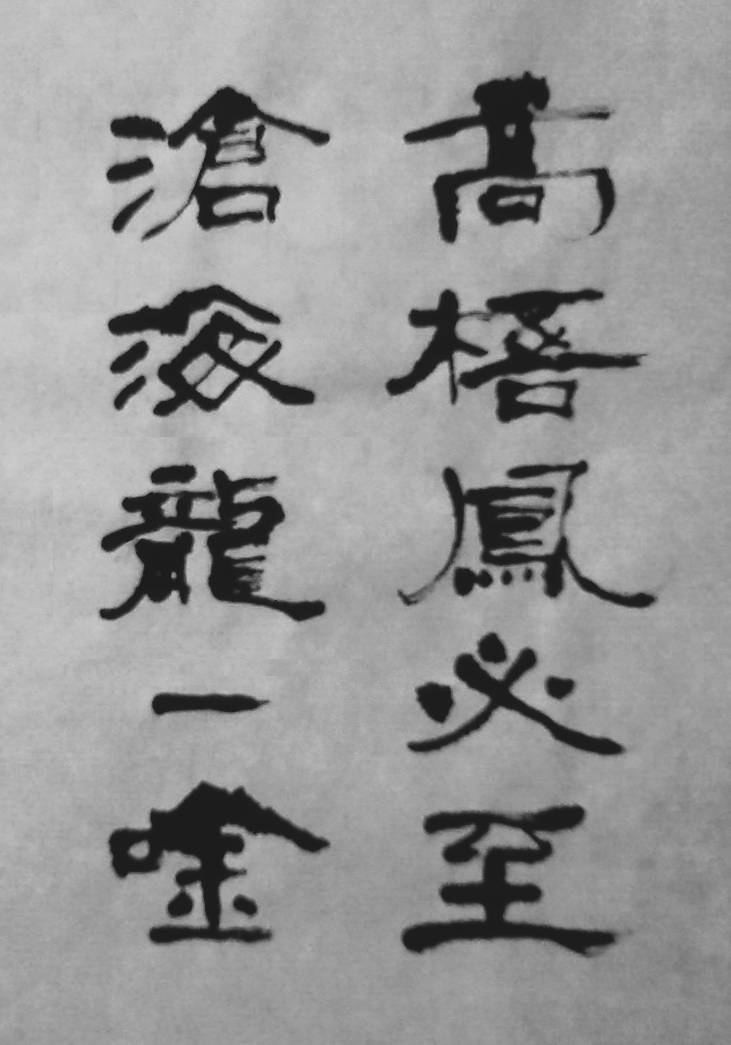 高梧鳳必至
滄海龍一唫